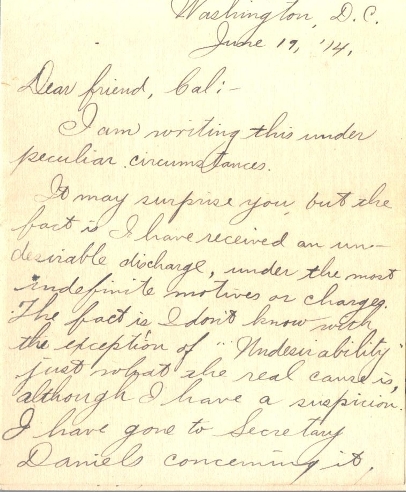 Washington, D.C.
June 19, '14,
Dear friend, Cal:-
I am writing this under
peculiar circumstances.
It may surprise you, but the
fact is I have received an un-
desirable discharge, under the most
indefinite motives or charges.
The fact is, I don't know with
the exception of "Undesirability"
just what the real cause is,
although I have a suspicion.
I have gone to Secretary
Daniels concerning it,